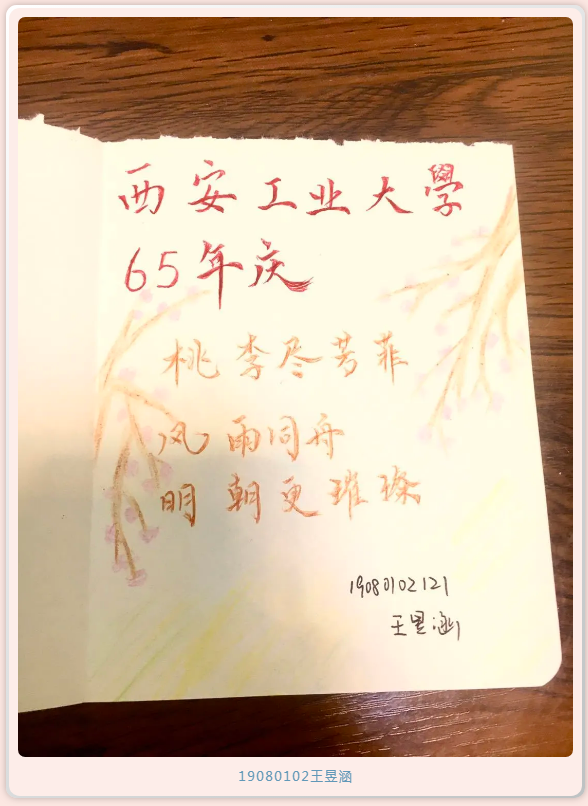 西安工业大學
65年庆
桃李尽芳菲
风雨同舟
明朝更璀璨
19080102121
王昱涵
19080102王昱涵